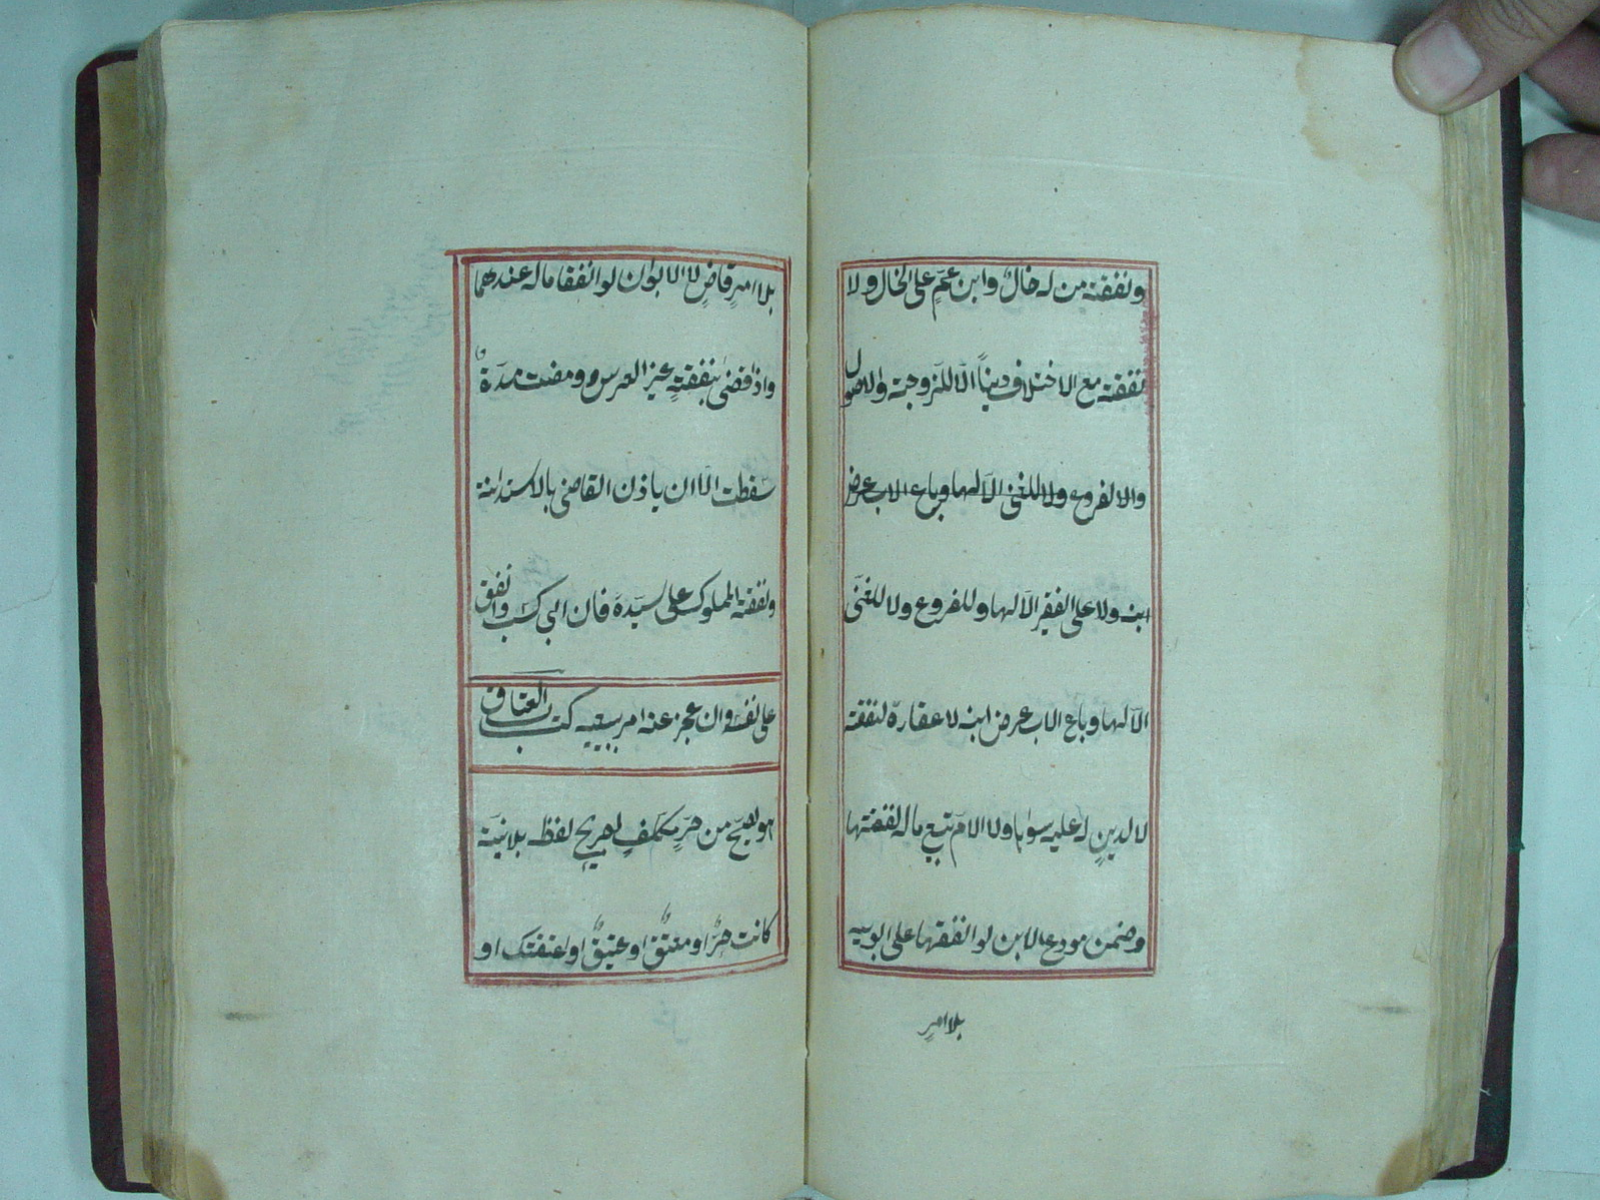 ونفقته من له خال وابن عم على الخال ولا
نفقته مع الاختلاف دينا الا للزوجة والاصول
والا لفروع ولا للغنى الا لها وباع الاب عرض
ابنه ولا على الفقير الا لها وللفروع ولا للغنى
الا لها وباع الاب عرض ابنه لا عقاره لنفقته
لا لدين له عليه سواها ولا الام تبيع ماله لنفقتها
وضمن مودع الابن لو انفقها على ابويه
بلا امر
بلا امر قاض لا الابوان لو انفقا ماله عندهما
واذا قضى بنفقة غير العرس ومضت مدة
سقطت الا ان ياذن القاضى بالاستدانة
ونفقة المملوك على سيده فان ابى كسب وانفق
على نفسه وان عجز عنه امر ببيعه كتاب العتاق
هو يصح من حر مكلف لصريح لفظه بلا نية
كانت حر او معتق او عتيق او اعتقتك او